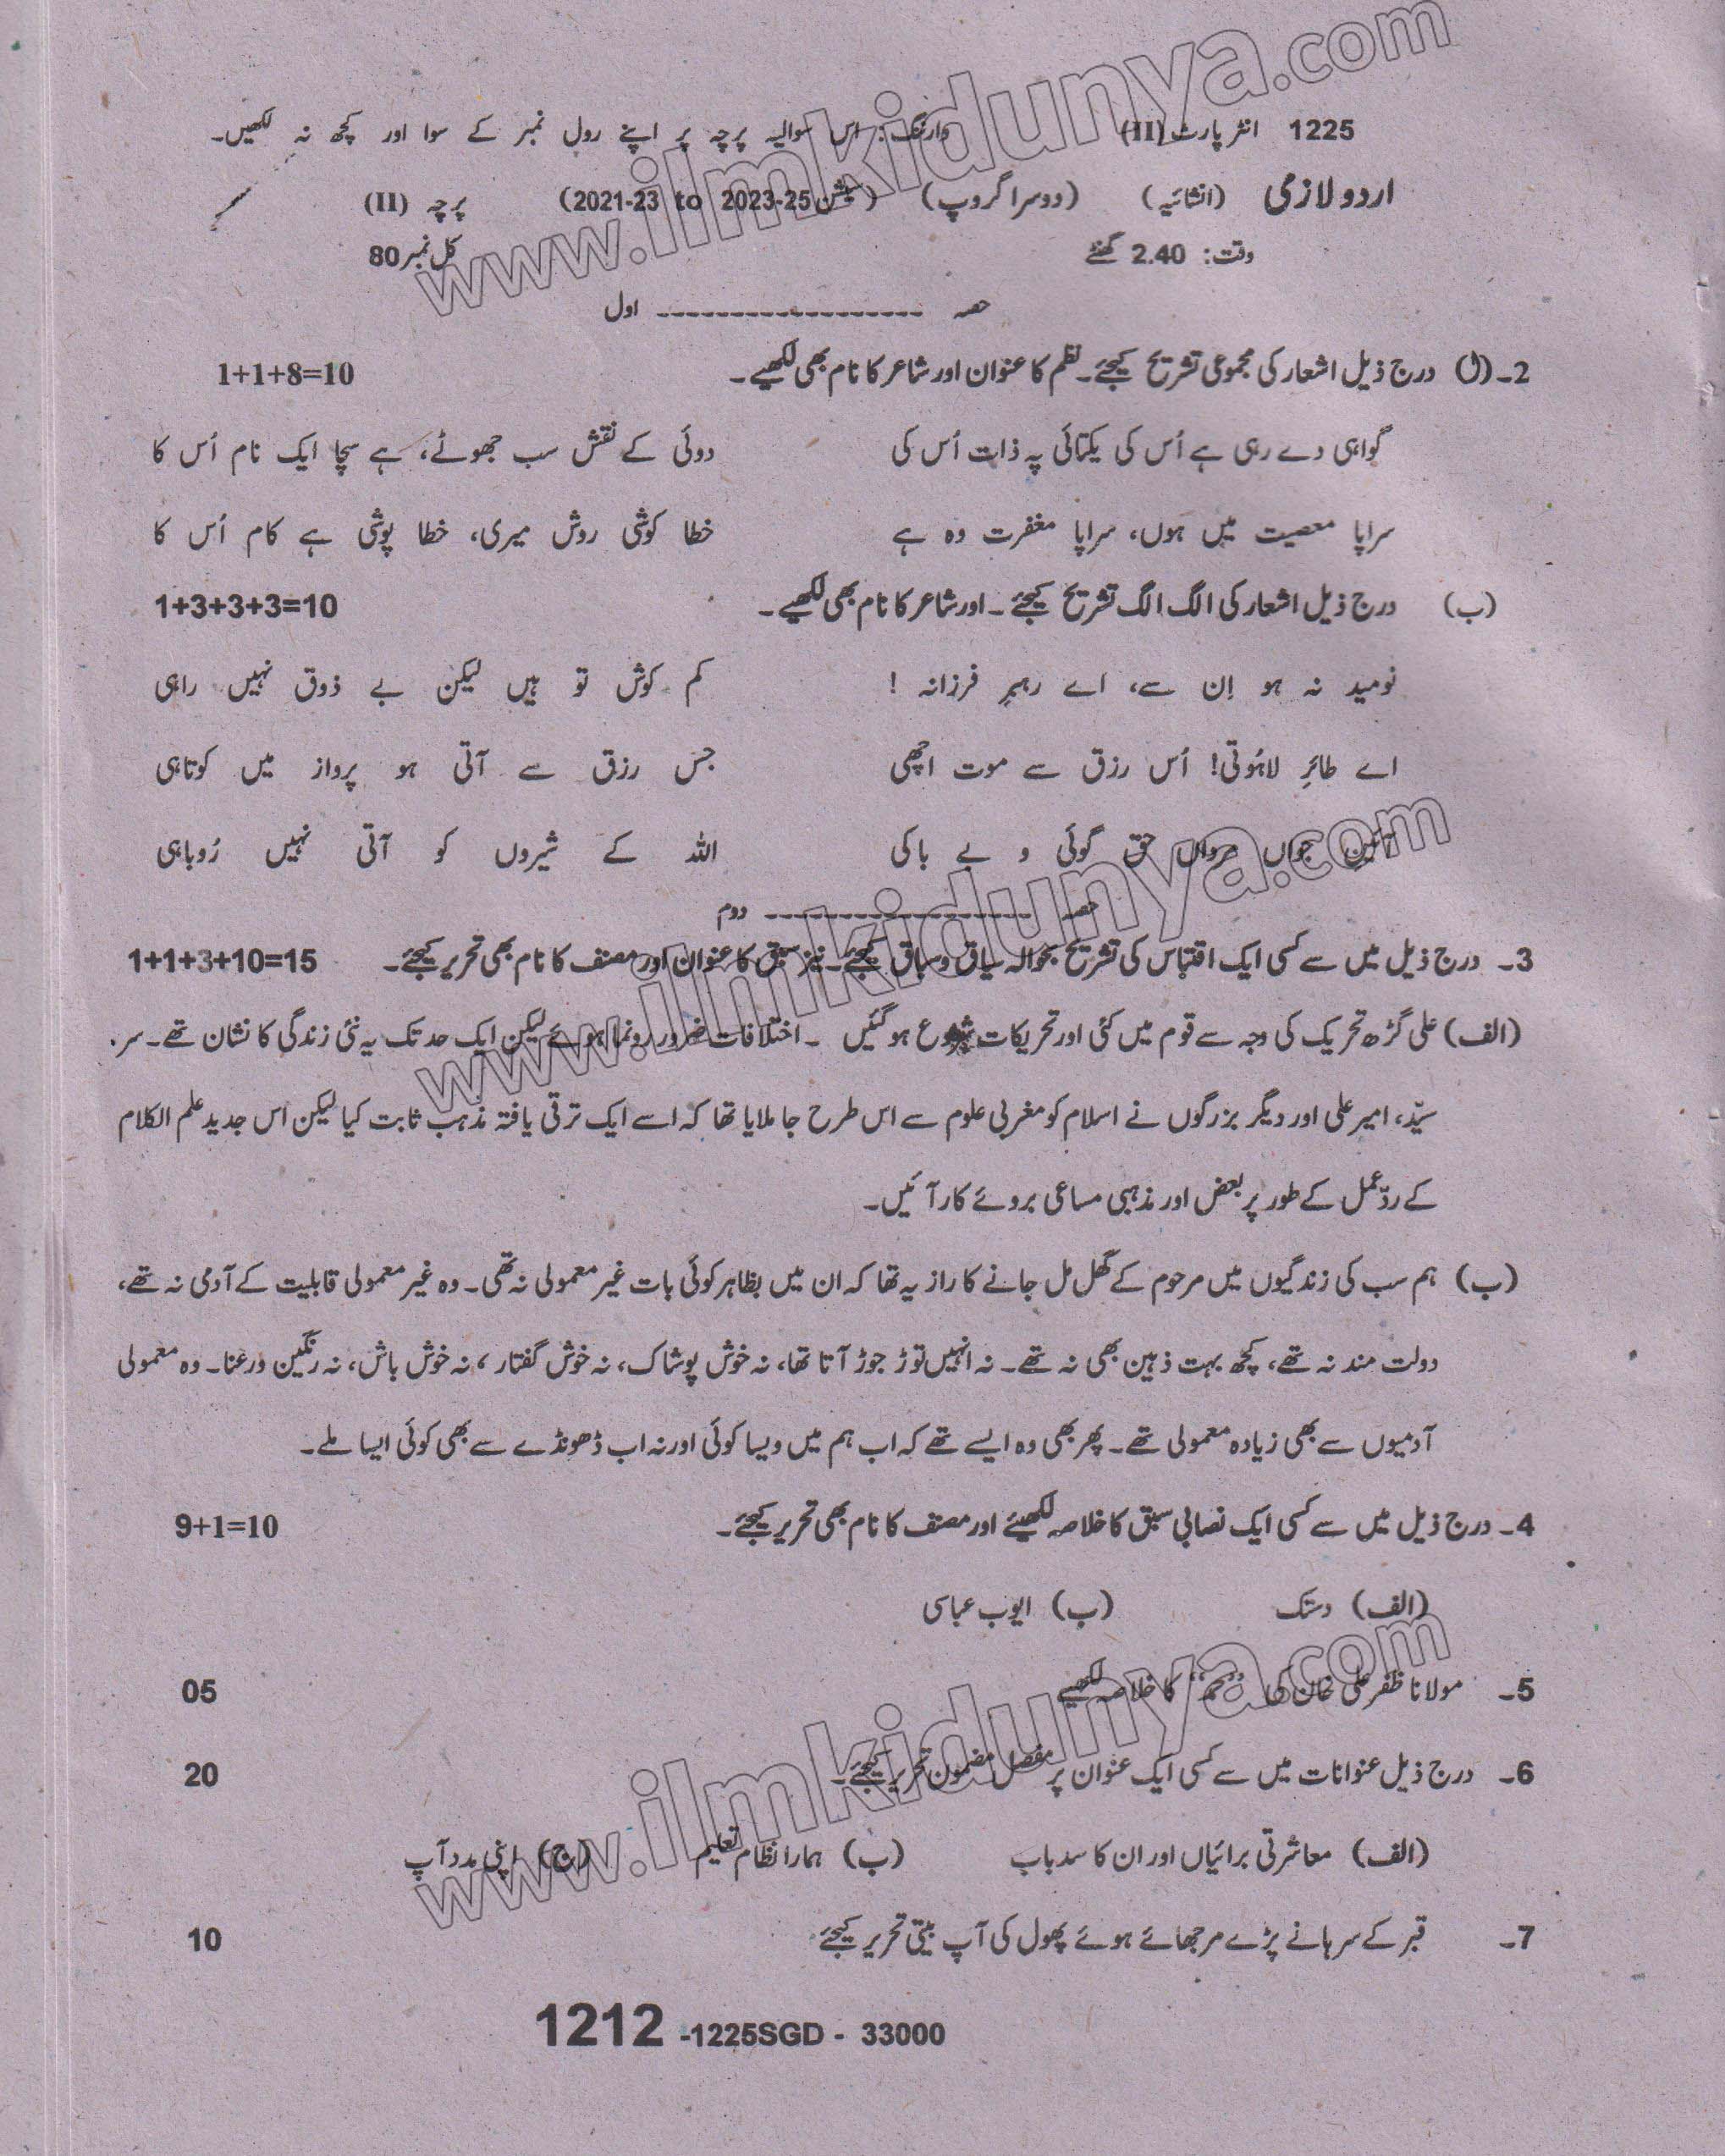 1225 انٹر پارٹ (II) وارننگ: اس سوالیہ پرچہ پر اپنے رول نمبر کے سوا اور کچھ نہ لکھیں۔
اردو لازمی (انشائیہ) (دوسرا گروپ) (سیشن 2021-23 to 2023-25) پرچہ (II)
وقت: 2.40 گھنٹے کل نمبر 80
حصہ ------------------ اول
2۔ (ا) درج ذیل اشعار کی مجموعی تشریح کیجئے۔ نظم کا عنوان اور شاعر کا نام بھی لکھیے۔ 1+1+8=10
گواہی دے رہی ہے اُس کی یکتائی پہ ذات اُس کی دوئی کے نقش سب جھوٹے، ہے سچا ایک نام اُس کا
سراپا معصیت میں ہوں، سراپا مغفرت وہ ہے خطا کوشی روش میری، خطا پوشی ہے کام اُس کا
(ب) درج ذیل اشعار کی الگ الگ تشریح کیجئے۔ اور شاعر کا نام بھی لکھیے۔ 1+3+3+3=10
نومید نہ ہو اِن سے، اے رہبرِ فرزانہ ! کم کوش تو ہیں لیکن بے ذوق نہیں راہی
اے طائرِ لاہُوتی! اُس رزق سے موت اچھی جس رزق سے آتی ہو پرواز میں کوتاہی
آئین جواں مرداں حق گوئی و بے باکی اللہ کے شیروں کو آتی نہیں رُوباہی
حصہ ------------------ دوم
3۔ درج ذیل میں سے کسی ایک اقتباس کی تشریح بحوالہ سیاق و سباق کیجئے۔ نیز سبق کا عنوان اور مصنف کا نام بھی تحریر کیجئے۔ 1+1+3+10=15
(الف) علی گڑھ تحریک کی وجہ سے قوم میں کئی اور تحریکات شروع ہو گئیں ۔ اختلافات ضرور رونما ہوئے لیکن ایک حد تک یہ نئی زندگی کا نشان تھے۔ سر.
سیّد، امیر علی اور دیگر بزرگوں نے اسلام کو مغربی علوم سے اس طرح جا ملایا تھا کہ اسے ایک ترقی یافتہ مذہب ثابت کیا لیکن اس جدید علم الکلام
کے ردِّ عمل کے طور پر بعض اور مذہبی مساعی بروئے کار آئیں۔
(ب) ہم سب کی زندگیوں میں مرحوم کے گھل مل جانے کا راز یہ تھا کہ ان میں بظاہر کوئی بات غیر معمولی نہ تھی۔ وہ غیر معمولی قابلیت کے آدمی نہ تھے،
دولت مند نہ تھے، کچھ بہت ذہین بھی نہ تھے۔ نہ انہیں توڑ جوڑ آتا تھا، نہ خوش پوشاک، نہ خوش گفتار، نہ خوش باش، نہ رنگین و رعنا۔ وہ معمولی
آدمیوں سے بھی زیادہ معمولی تھے۔ پھر بھی وہ ایسے تھے کہ اب ہم میں ویسا کوئی اور نہ اب ڈھونڈے سے بھی کوئی ایسا ملے۔
4۔ درج ذیل میں سے کسی ایک نصابی سبق کا خلاصہ لکھیئے اور مصنف کا نام بھی تحریر کیجئے۔ 9+1=10
(الف) دستک (ب) ایوب عباسی
5۔ مولانا ظفر علی خان کی "حمد" کا خلاصہ لکھیے 05
6۔ درج ذیل عنوانات میں سے کسی ایک عنوان پر مفصل مضمون تحریر کیجئے۔ 20
(الف) معاشرتی برائیاں اور ان کا سدباب (ب) ہمارا نظام تعلیم (ج) اپنی مدد آپ
7۔ قبر کے سرہانے پڑے مرجھائے ہوئے پھول کی آپ بیتی تحریر کیجئے 10
1212 -1225SGD - 33000
www.ilmkidunya.com
www.ilmkidunya.com
www.ilmkidunya.com